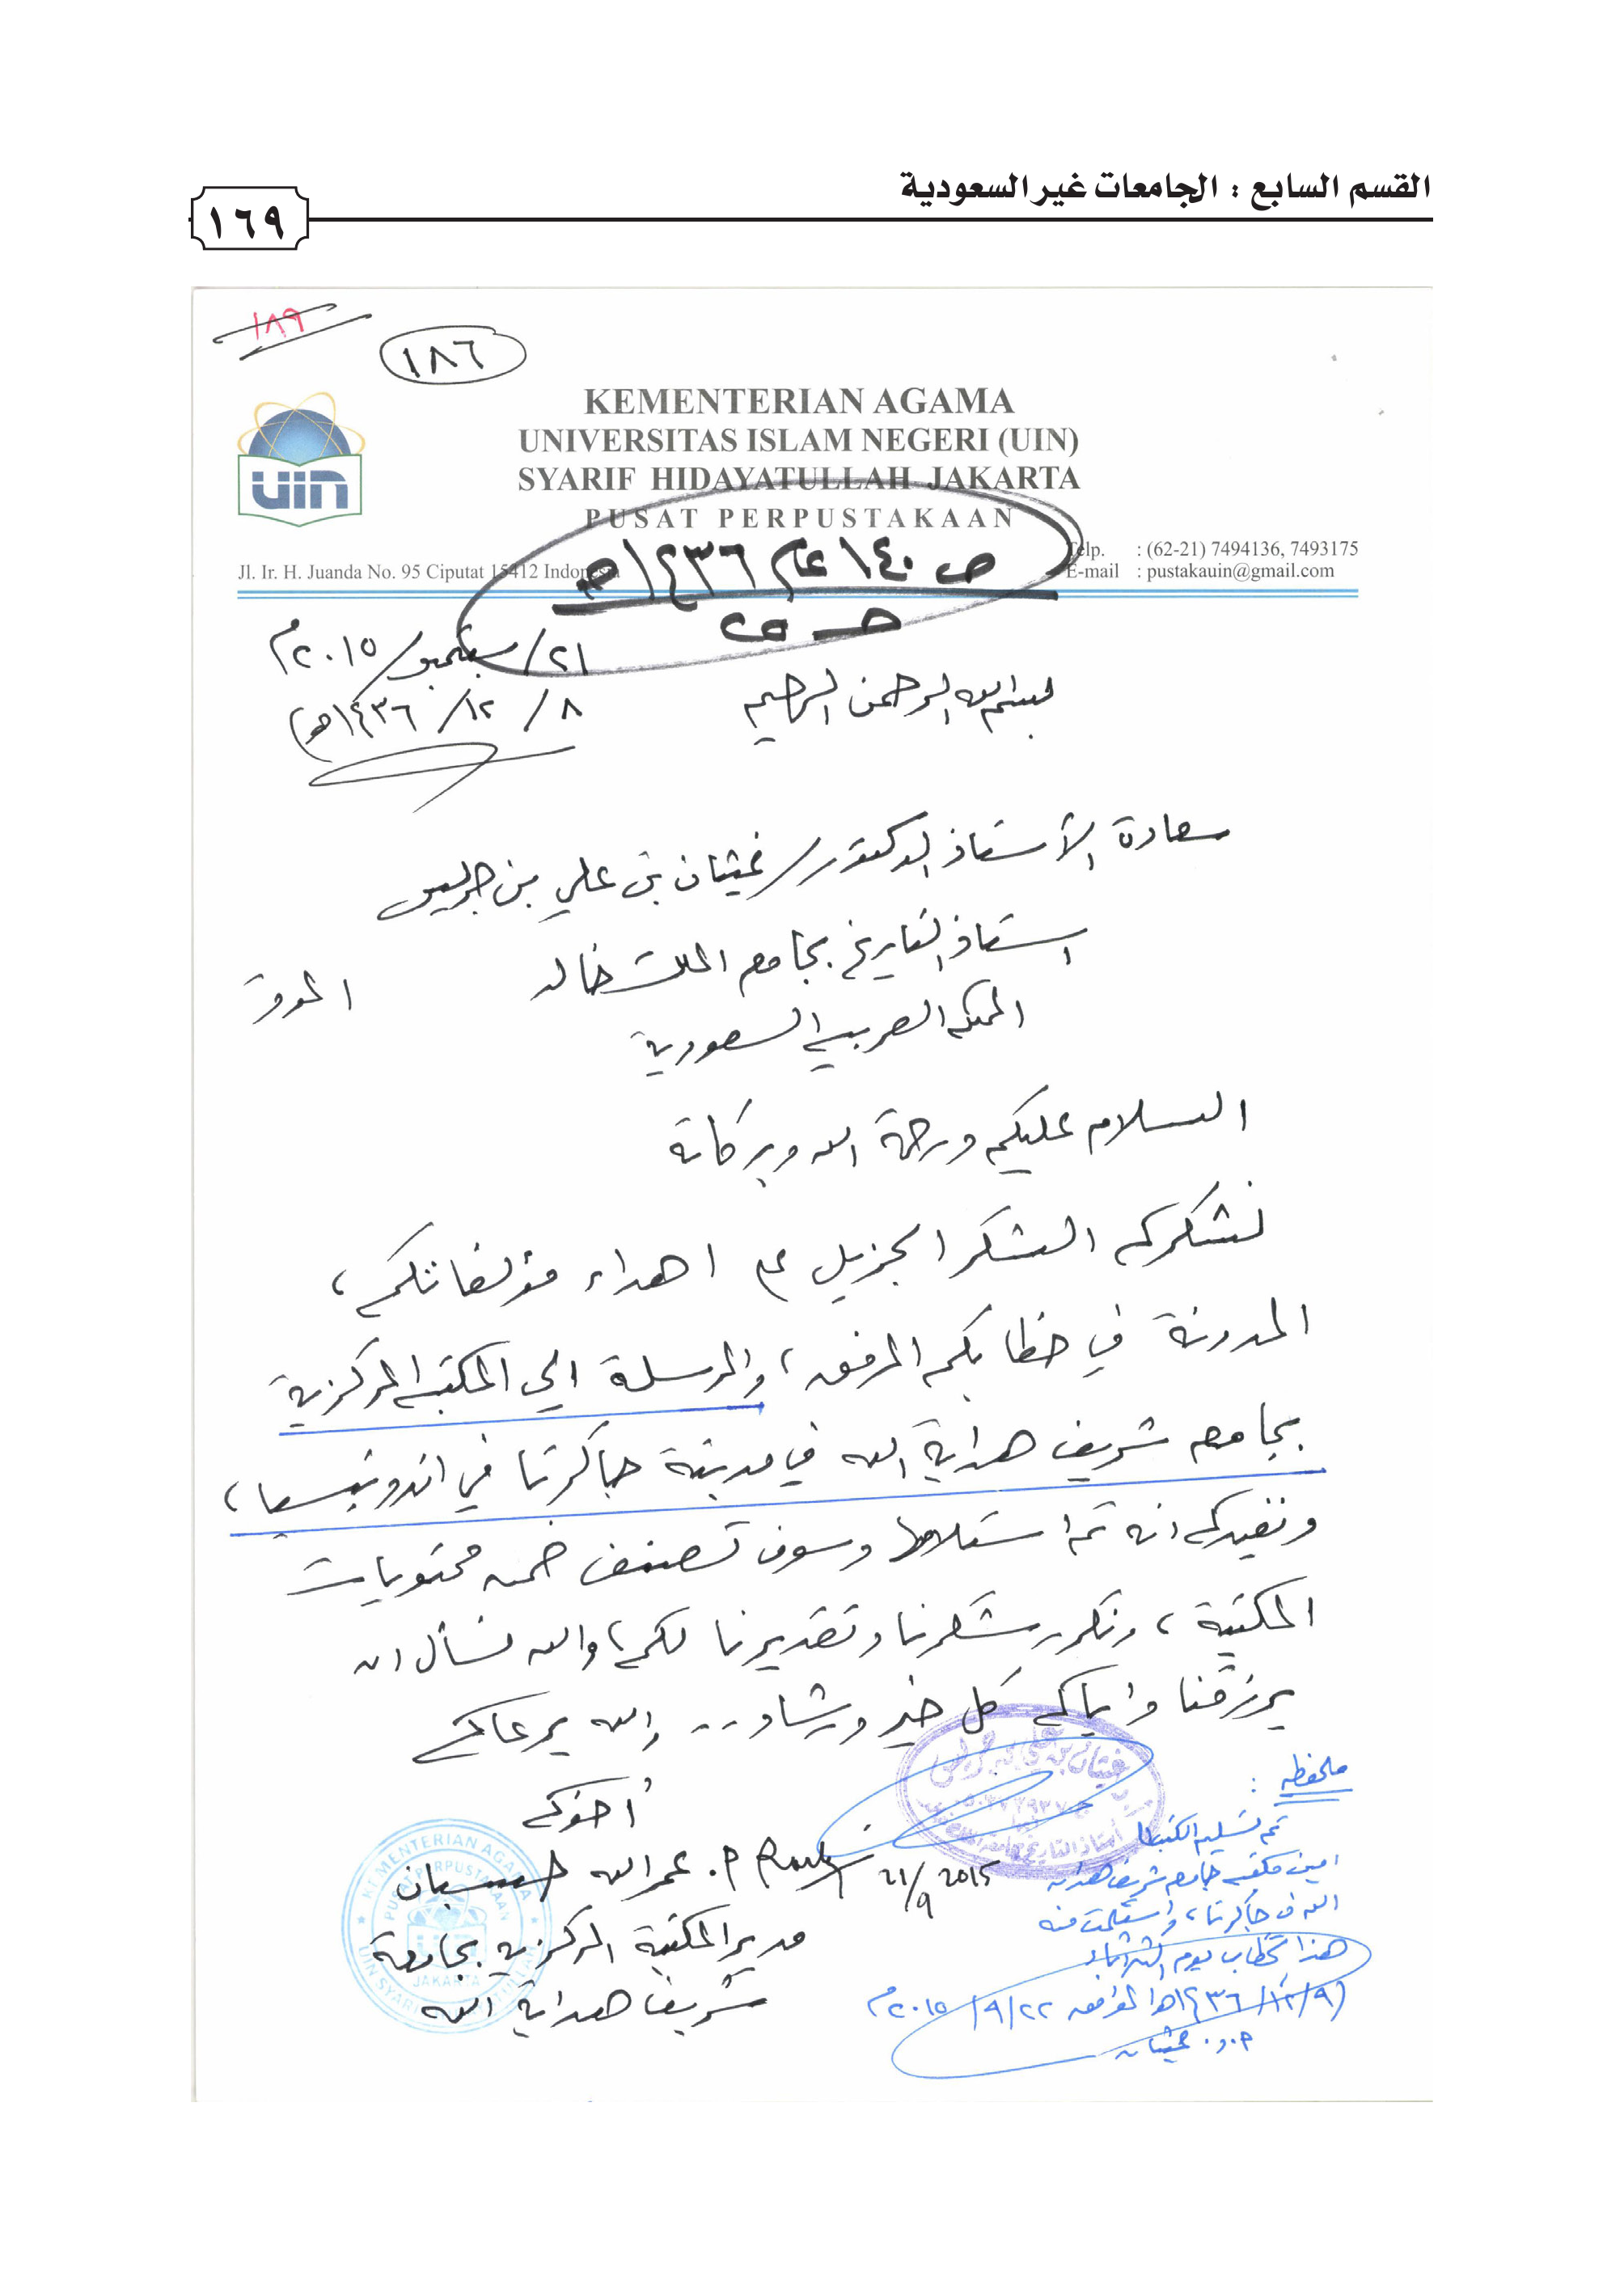 القسم السابع : الجامعات غير السعودية
١٦٩
١٨٩
١٨٦
KEMENTERIAN AGAMA
UNIVERSITAS ISLAM NEGERI (UIN)
SYARIF HIDAYATULLAH JAKARTA
PUSAT PERPUSTAKAAN
uin
Jl. Ir. H. Juanda No. 95 Ciputat 15412 Indonesia
Telp. : (62-21) 7494136, 7493175
E-mail : pustakauin@gmail.com
ص ١٤٠ عام ١٤٣٦هـ
٢١/سبتمبر/٢٠١٥م
٨/ ١٢/ ١٤٣٦هـ)
بسم الله الرحمن الرحيم
سعادة الأستاذ الدكتور/ غيثان بن علي بن جريس
استاذ التاريخ بجامعة الملك خالد
المملكة العربية السعودية
الموقر
السلام عليكم ورحمة الله وبركاته
نشكركم الشكر الجزيل على اهداء مؤلفاتكم ،
المدونة في خطابكم المرفق ، والمرسلة الى المكتبة المركزية
بجامعة شريف هداية الله في مدينة جاكرتا في اندونيسيا ،
ونفيدكم انه تم استلامها وسوف تصنف ضمن محتويات
المكتبة ، ونكرر شكرنا وتقديرنا لكم ، والله نسأل ان
يرزقنا واياكم كل خير ورشاد .. والله يرعاكم
أخوكم
م. عمر الله حسبان
21/9 2015
مدير المكتبة المركزية بجامعة
شريف هداية الله
KEMENTERIAN AGAMA
PUSAT PERPUSTAKAAN
UIN SYARIF HIDAYATULLAH
JAKARTA
غيثان بن علي بن جريس
أستاذ التاريخ بجامعة الملك خالد
ملحظه :
تم تسليم الكتب لـ
امين مكتبة جامعة شريف هداية
الله في جاكرتا ، واستلمت منه
هذا الخطاب يوم الثلاثاء
(٩/ ١٢/ ١٤٣٦هـ الموافق ٢٢/ ٩/ ٢٠١٥م
أ.د. غيثان